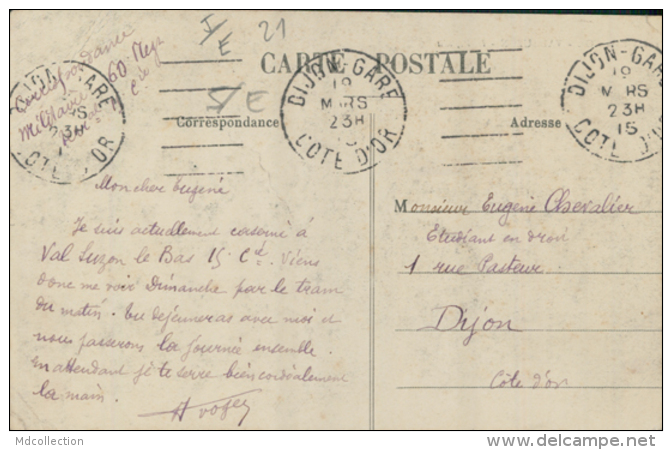 I/E
21
CARTE POSTALE
Correspondance
Militaire 60
I/E
Correspondance
Adresse
DIJON-GARE
19
MARS
23H
15
COTE D'OR
DIJON-GARE
19
MARS
23H
15
COTE D'OR
DIJON-GARE
23H
COTE D'OR
Mon cher Eugène
Je suis actuellement caserné à
Val Suzon le Bas 15 Cie. Viens
donc me voir Dimanche par le tram
du matin. tu dejeuneras avec moi et
nous passerons la journée ensemble.
En attendant je te serre bien cordialement
la main.
Monsieur Eugène Chevalier
Etudiant en droit
1 rue Pasteur
Dijon
Côte d'or
Mdcollection
www.delcampe.net